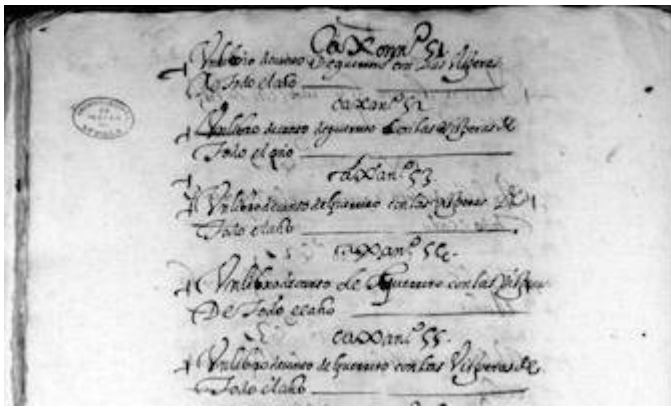 Caxon nº 51
Un libro de canto de guerrero con las Visperas
De todo el año
caxa nº 52
Un libro de canto de guerrero con las visperas de
Todo el año
caxa nº 53
Un libro de canto de guerrero con las visperas De
Todo el año
caxa nº 54
Un libro de canto de guerrero con las Visperas
De Todo el año
caxa nº 55
Un libro de canto de guerrero con las Visperas de
Todo el año